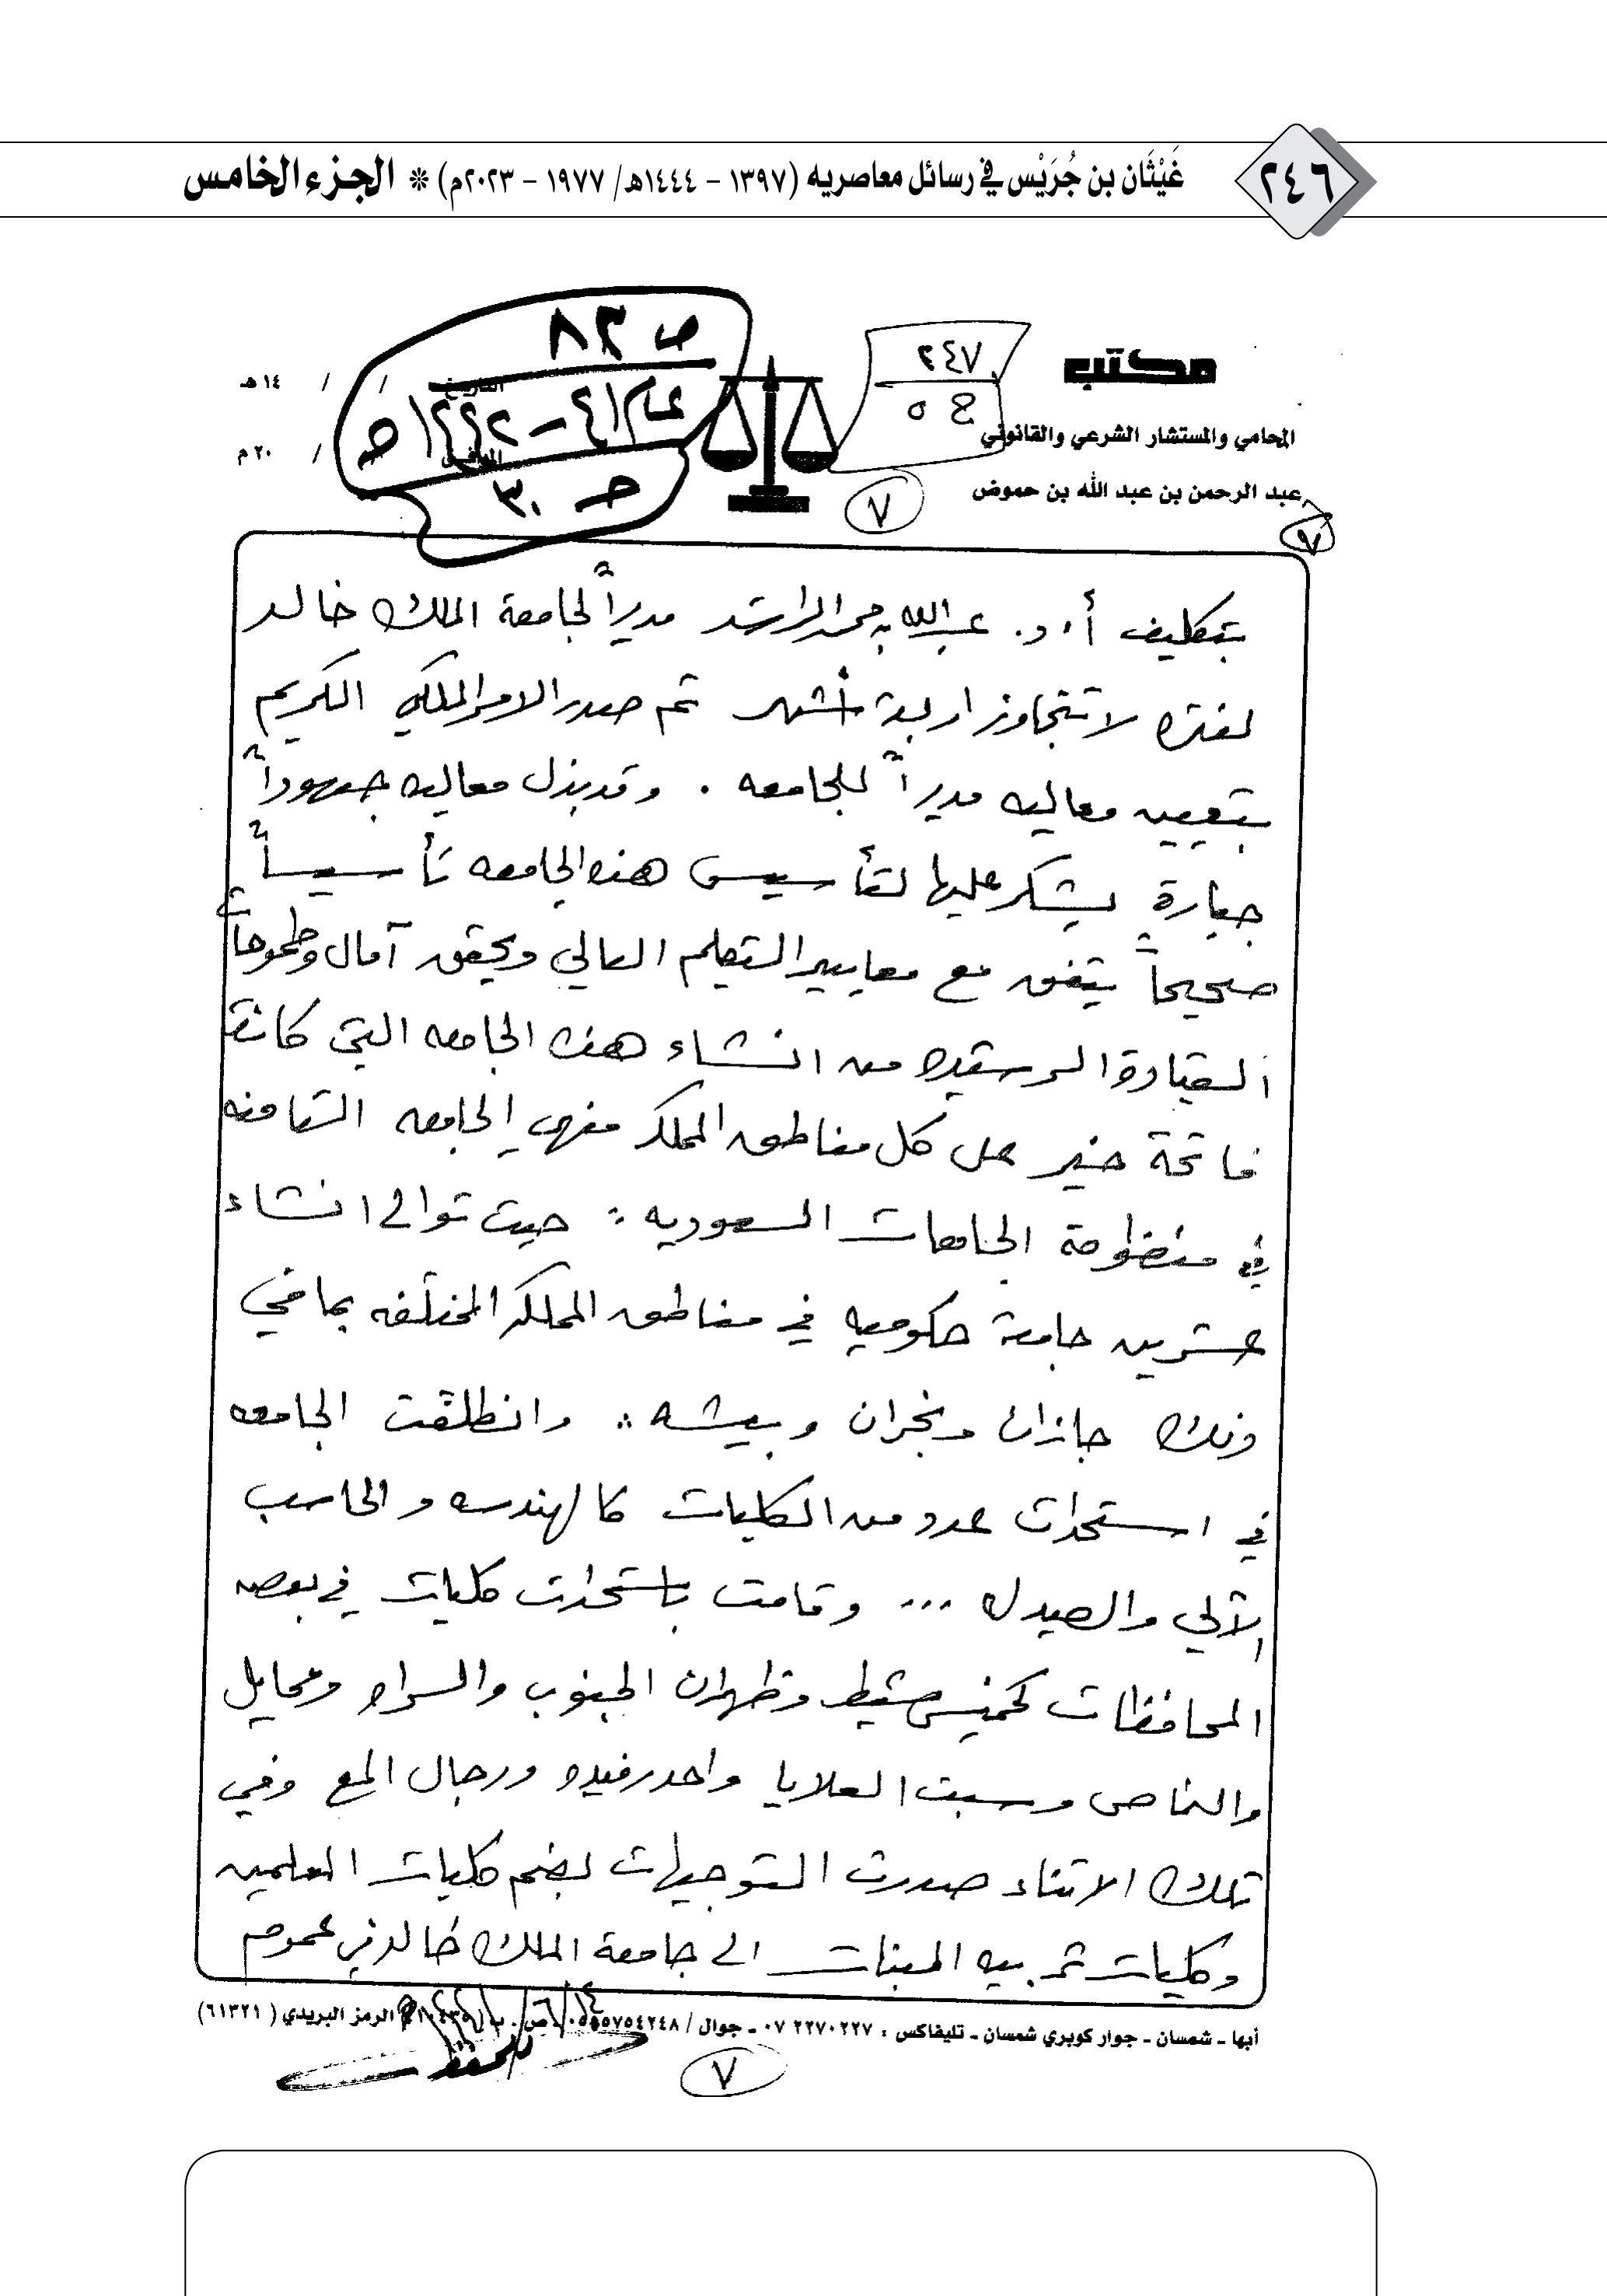 ٢٤٦
غَيْثَان بن جُرَيْس في رسائل معاصريه (١٣٩٧ - ١٤٤٤هـ/ ١٩٧٧ - ٢٠٢٣م) * الجزء الخامس
مكتب
المحامي والمستشار الشرعي والقانوني
عبد الرحمن بن عبد الله بن حموض
٢٤٧
ج ٥
٧
ص ٨٣
التاريخ / / ١٤هـ
الموافق / ٢٠م
ج ٣٠
٩
بتكليف أ. د. عبدالله بن محمد الراشد مديراً لجامعة الملك خالد
لفتره لا تتجاوز اربعة أشهر ثم صدر الامر الملكي الكريم
بتعيين معاليه مديراً للجامعه . وقد بذل معاليه جهوداً
جبارة يشكر عليها لتأسيس هذه الجامعه تأسيساً
صحيحاً يتفق مع معايير التعليم العالي ويحقق آمال وطموحات
القيادة الرشيده من انشاء هذه الجامعه التي كانت
فاتحة خير على كل مناطق المملكه فهي الجامعه الثامنه
في منظومة الجامعات السعوديه : حيث توالى انشاء
عشرين جامعة حكوميه في مناطق المملكه المختلفه بما في
ذلك جازان ونجران وبيشه : وانطلقت الجامعه
في استحداث عدد من الكليات كالهندسه والحاسب
الآلي والصيدله ... وقامت باستحداث كليات في بعض
المحافظات كخميس مشيط وظهران الجنوب والسراه ومحايل
والنماص وسبت العلايا واحد رفيده ورجال المع وفي
تلك الاثناء صدرت التوجيهات بضم كليات المعلمين
وكليات تربيه البنات الى جامعة الملك خالد في عموم
أبها - شمسان - جوار كوبري شمسان - تليفاكس : ٢٢٧٠٢٢٧ ٠٧ - جوال / ٠٥٥٥٧٥٤٢٤٨ ص.ب الرمز البريدي (٦١٣٢١)
للحفظ
٧